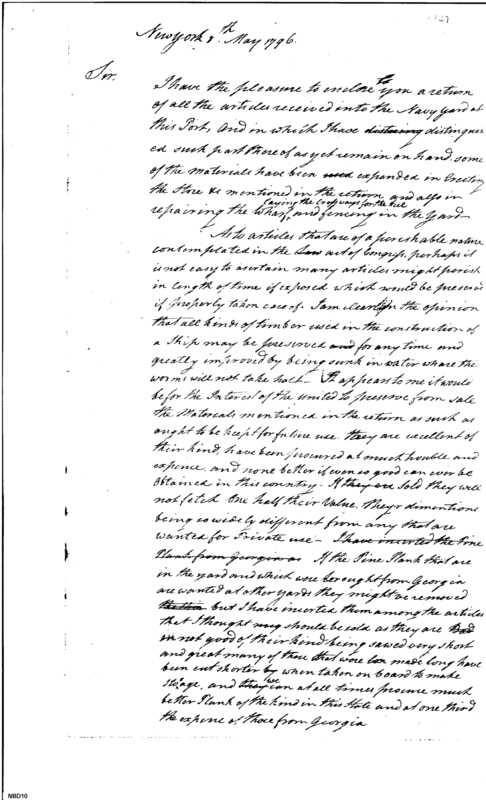 New york 8th May 1796.
Sir.
I have the pleasure to enclose to you a return
of all the articles received into the Navy yard at
this Port, and in which I have distinguish
ed such part thereof as yet remain on hand. some
of the materials have been used expended in Erecting
the Store &c mentioned in the return and also in
laying the Cross ways for the keel
repairing the wharf, and fencing in the Yard
As to articles that are of a perishable nature
contemplated in the Law act of Congress, perhaps it
is not easy to asertain many articles might perish
in length of time if exposed which would be preserved
if properly taken care of. I am clearly in the opinion
that all kinds of timber used in the construction of
a Ship may be preserved and for any time and
greatly improved by being sunk in water where the
worms will not take hold - It appears to me it would
be for the Interest of the united to preserve from sale
the Materials mentioned in the return as such as
ought to be kept for future use. they are excellent of
their kind, have been procured at much trouble and
expence, and none better if even so good can ever be
obtained in this country. If they are sold they will
not fetch one half their Value. they dimentions
being so widely different from any that are
wanted for Private use - I have inserted the Pine
Plank from Georgia as If the Pine Plank that are
in the yard and which were borought from Georgia
are wanted at other yards they might be removed
but I have inserted them among the articles
that I thought should be sold as they are Bad
in not good of their kind being sawed very short
and great many of those that were made long have
been cut shorter by when taken on board to make
stoage, and they we can at all times procure much
better Plank of the kind in this State and at one third
the expence of those from Georgia
NBD10